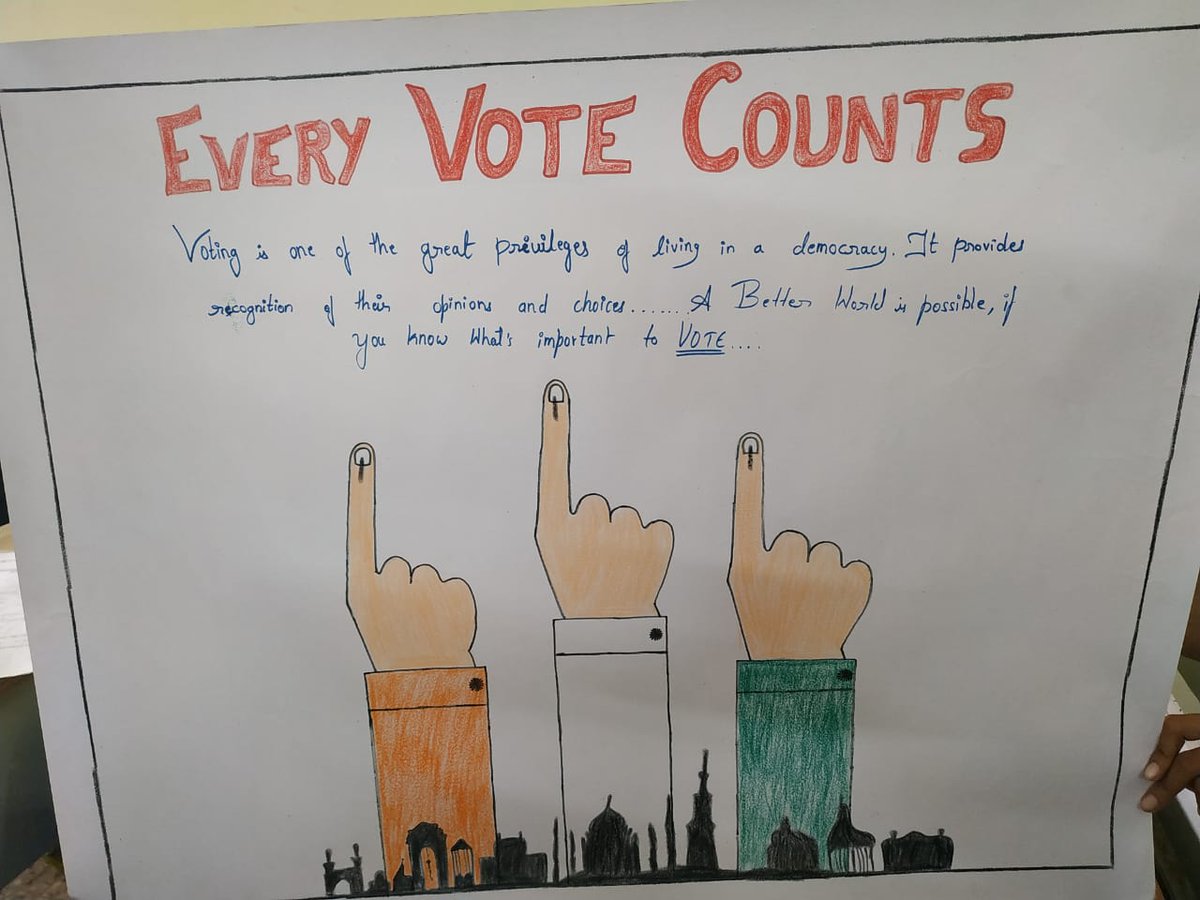 EVERY VOTE COUNTS
Voting is one of the great privileges of living in a democracy. It provides
recognition of their opinions and choices.......A Better World is possible, if
you know What's important to VOTE....